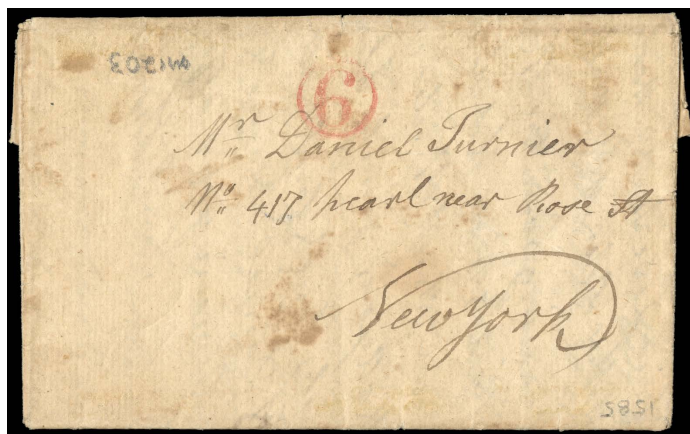 6
Mr Daniel Turnier
No 417 pearl near Rose St
New York
1585